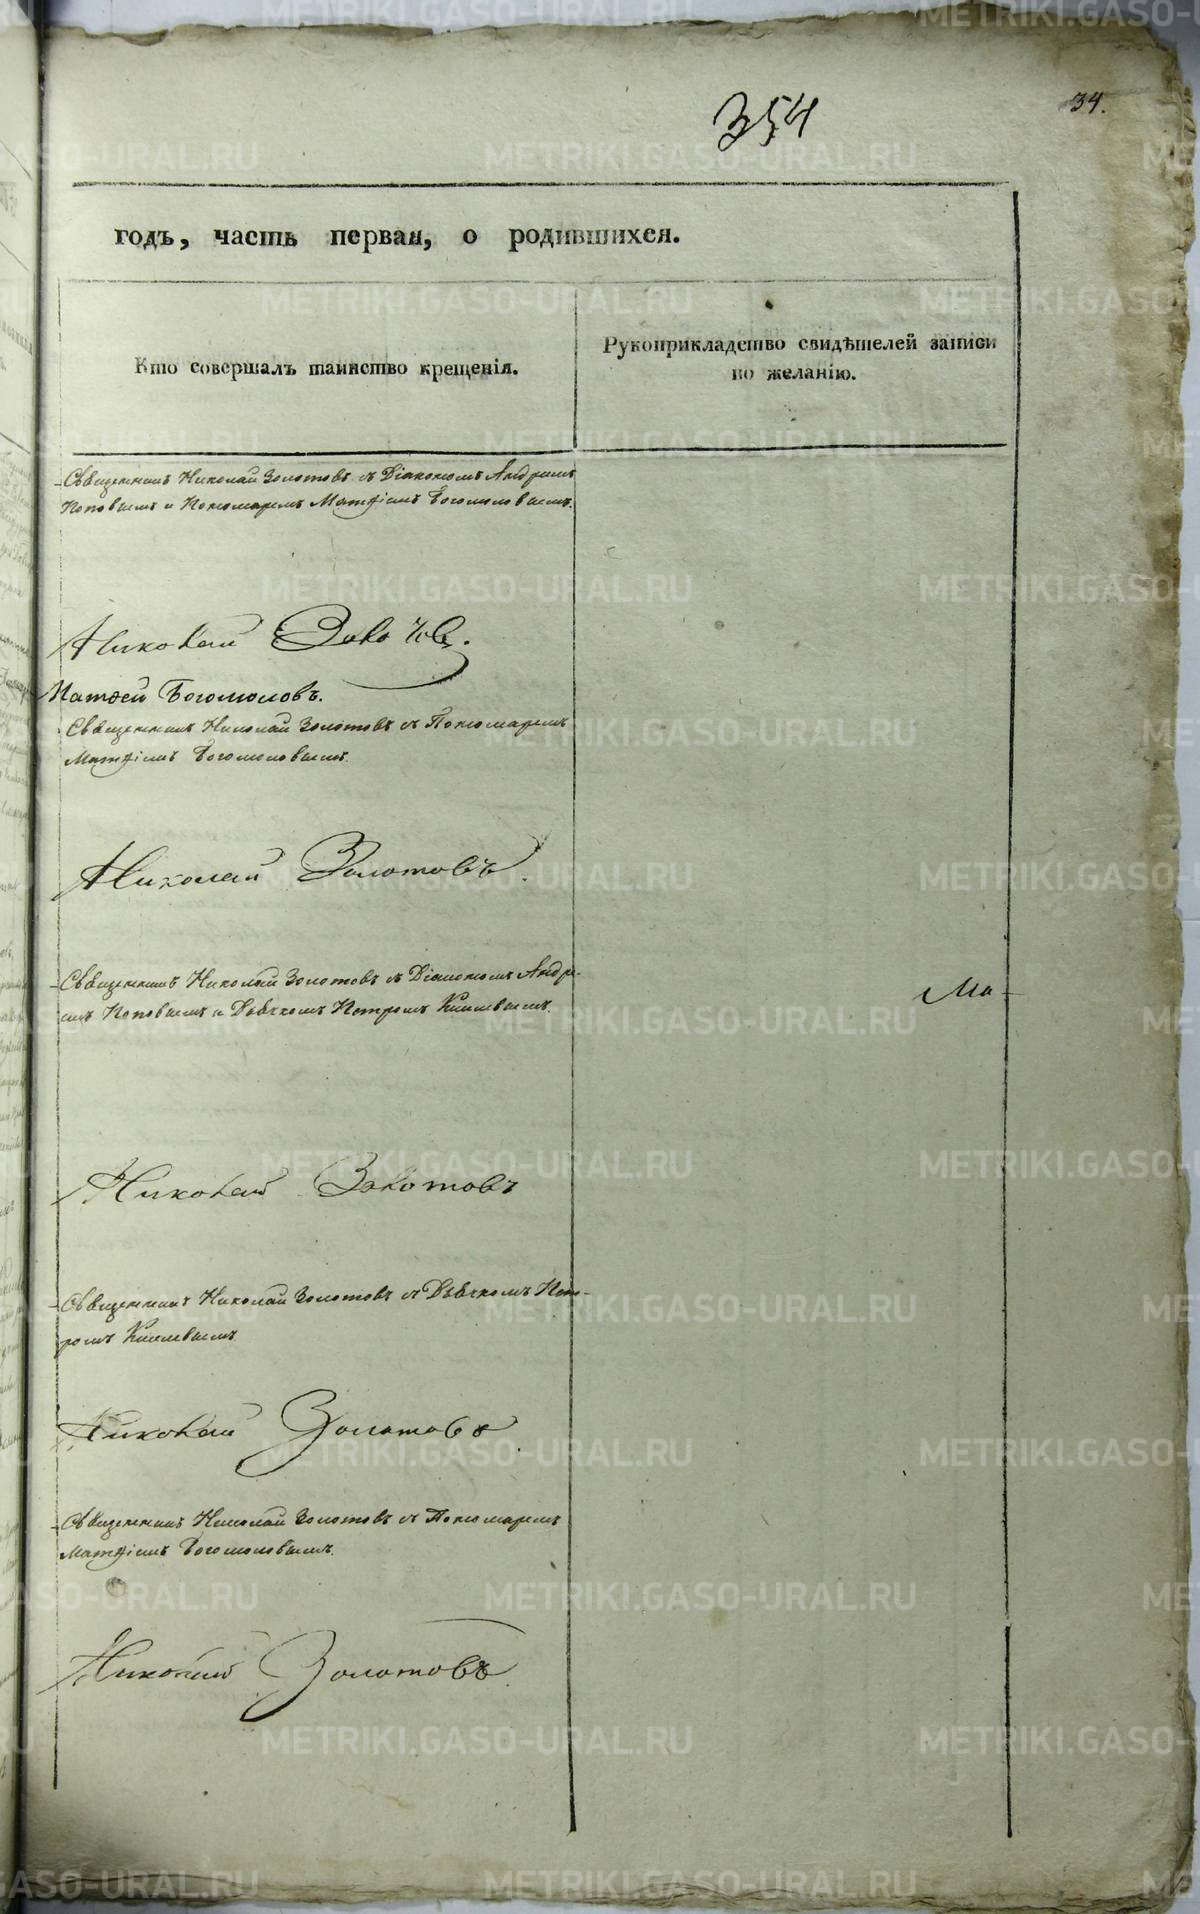 354
34.
годъ, часть первая, о родившихся.
Кто совершалъ таинство крещенія.
Рукоприкладство свидѣтелей записи
по желанію.
Священникъ Николай Золотовъ съ Діакономъ Андреемъ
Поповымъ и Пономаремъ Матѳіемъ Богомоловымъ.
Николай Золотовъ.
Матвей Богомоловъ.
Священникъ Николай Золотовъ съ Пономаремъ
Матѳіемъ Богомоловымъ.
Николай Золотовъ.
Священникъ Николай Золотовъ съ Діакономъ Андре-
емъ Поповымъ и Дьячкомъ Петромъ
Ма-
Николай Золотовъ
Священникъ Николай Золотовъ съ Дьячкомъ Пет-
ромъ
Николай Золотовъ
Священникъ Николай Золотовъ съ Пономаремъ
Матѳіемъ Богомоловымъ.
Николай Золотовъ.
METRIKI.GASO-URAL.RU